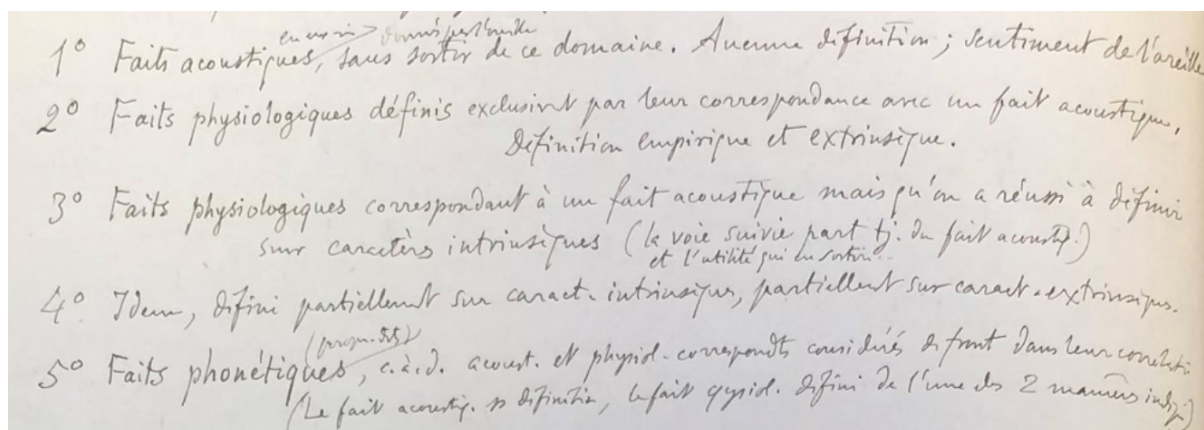 donnés par l'oreille
1° Faits acoustiques, sans sortir de ce domaine. Aucune définition ; sentiment de l'oreille
2° Faits physiologiques définis exclusivt par leur correspondance avec un fait acoustique.
Définition empirique et extrinsèque.
3° Faits physiologiques correspondant à un fait acoustique mais qu'on a réussi à définir
sur caractères intrinsèques (la voie suivie part tj. du fait acoustiq.)
et l'utilité qui en sortira
4° Idem, défini partiellemt sur caract. intrinsèques, partiellemt sur caract. extrinsèques.
5° Faits phonétiques, c.à.d. acoust. et physiol. correspondts considérés de front dans leur corrélati
(Le fait acoustiq. ss définition, le fait physiol. défini de l'une des 2 manières indiq.)